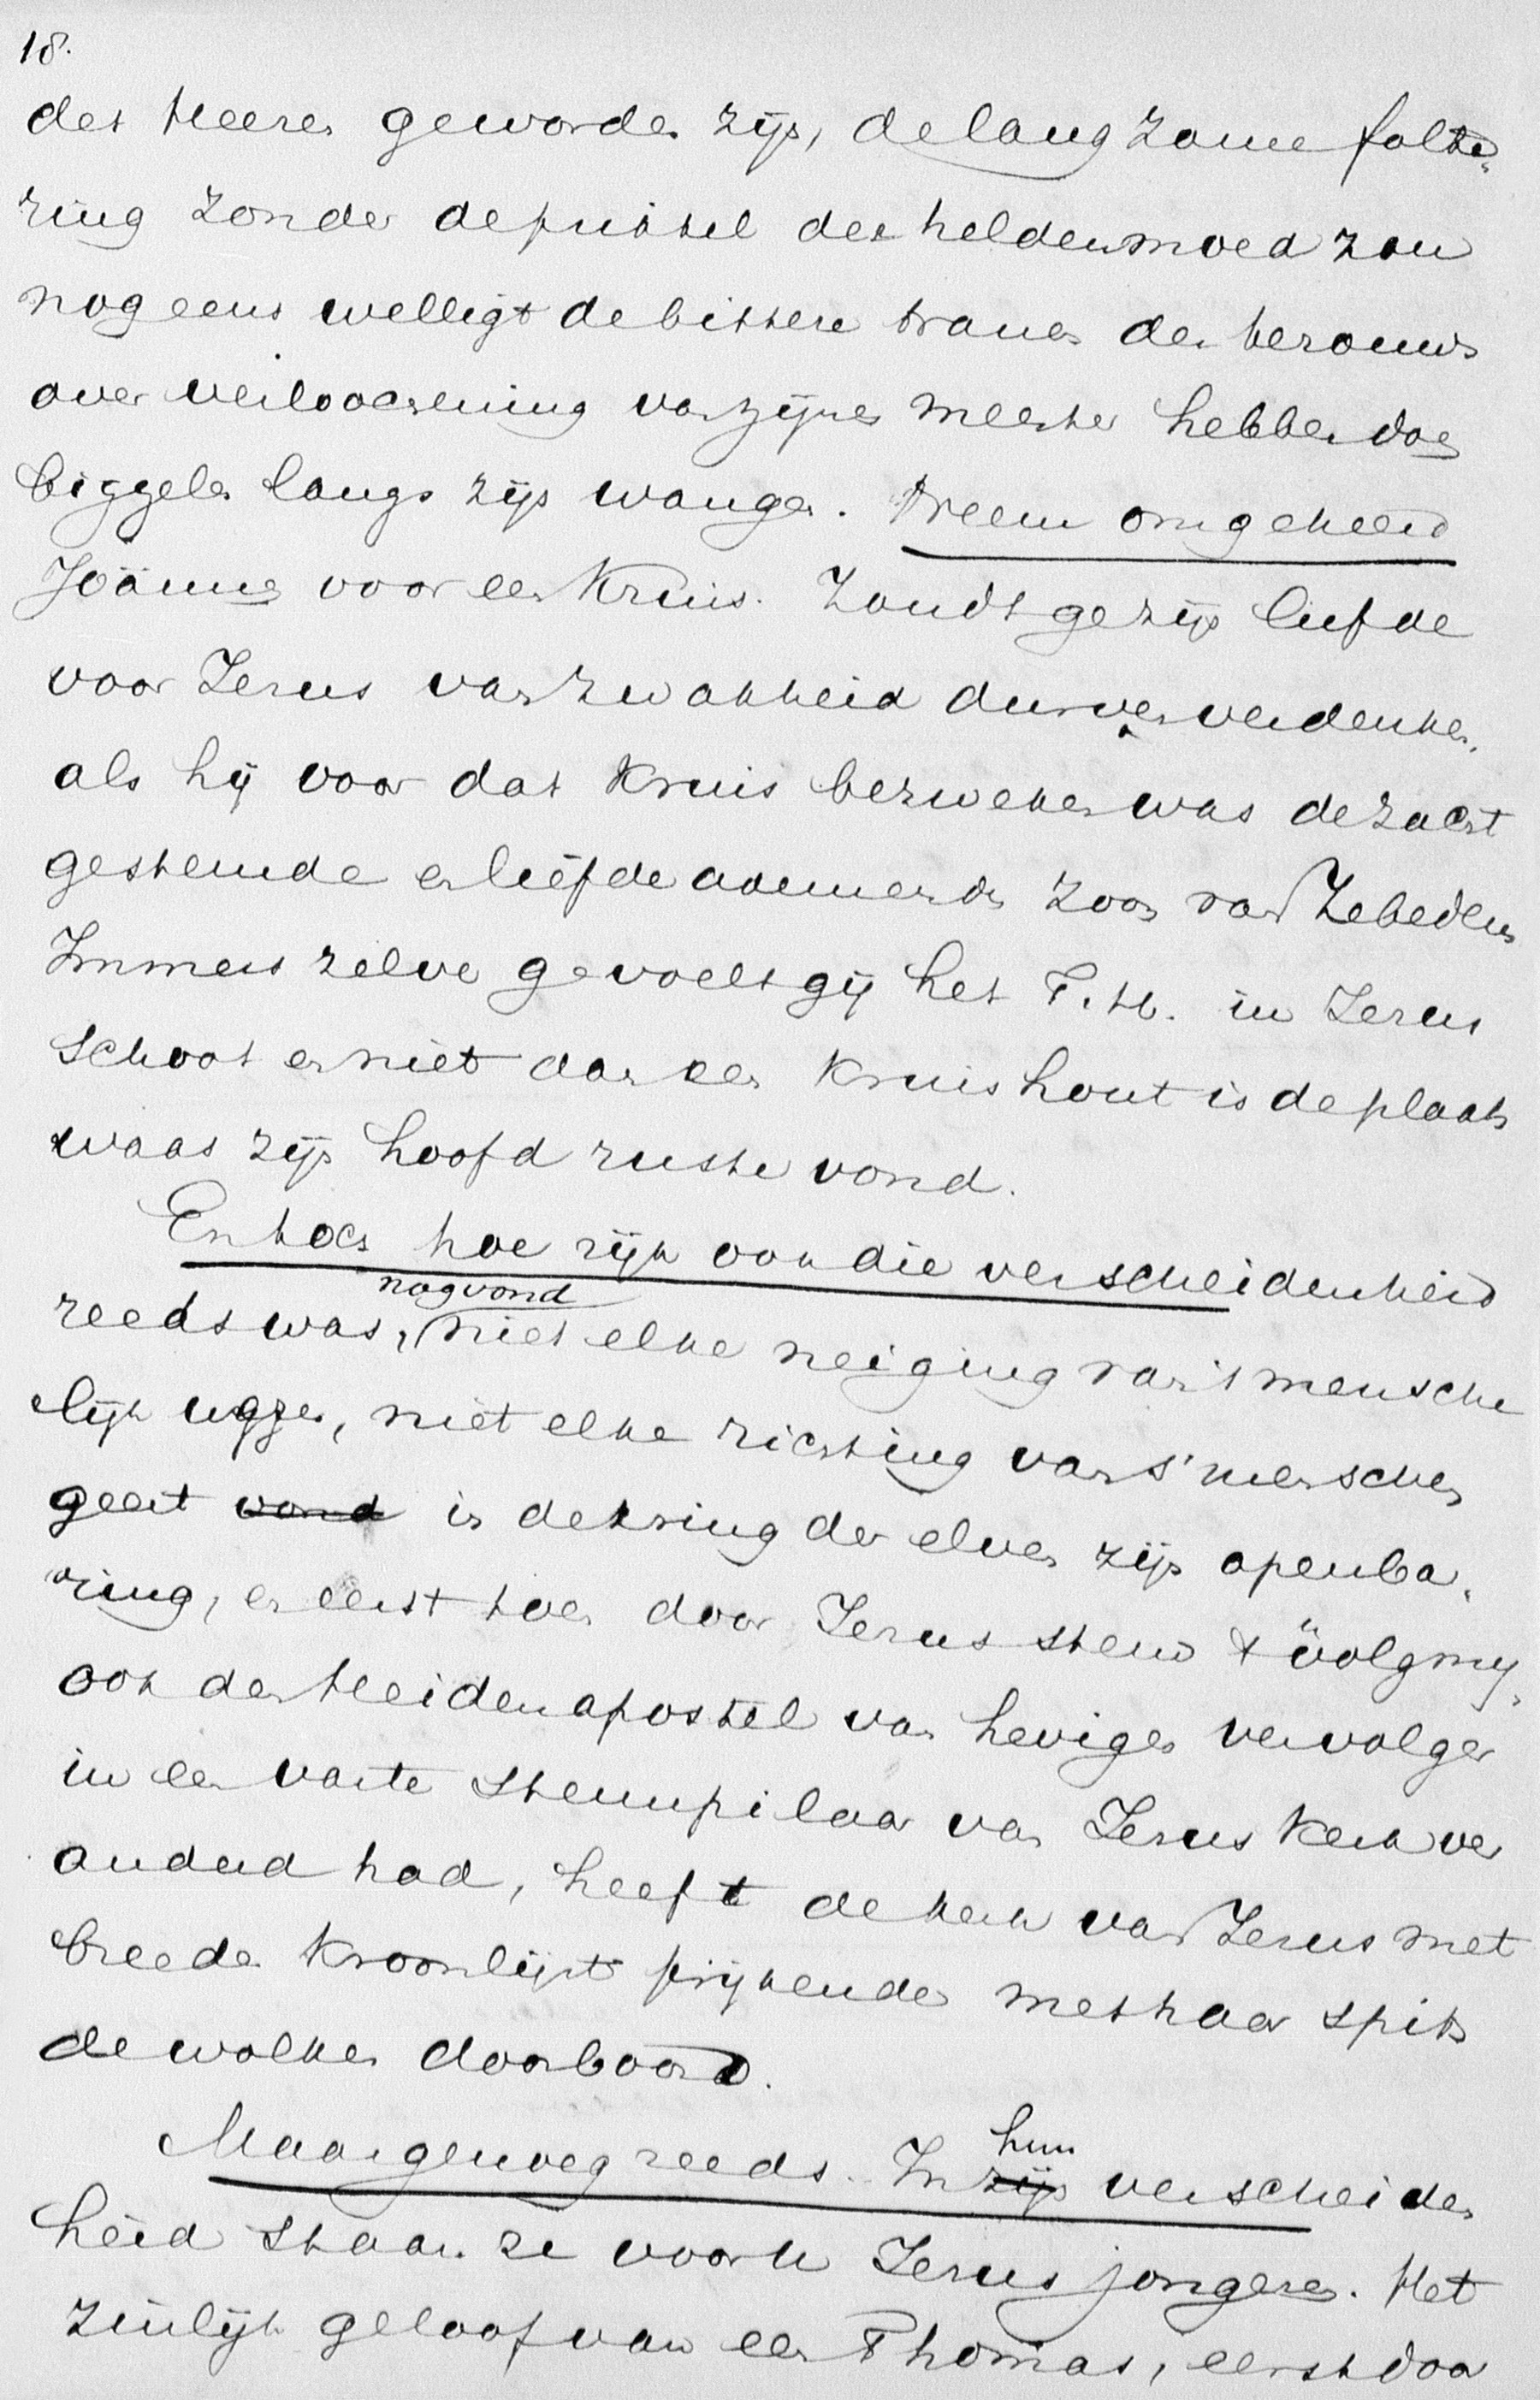 18.
des Heeren geworden zijn, de langzame folte„
ring zonder de prikkel des heldenmoed zou
nog eens welligt de bittere tranen des berouws
over verloochening van zijnen meester hebben doen
biggelen langs zijn wangen. Neem omgekeerd
Joännes voor een Kruis. Zoudt ge zijn liefde
voor Jesus van zwakheid durven verdenken,
als hij voor dat Kruis bezweken was de zacht
gestemde en liefde ademende zoon van Zebedeus
Immers zelve gevoelt gij het T. H. in Jesus
schoot en niet aan een kruishout is de plaats
waar zijn hoofd ruste vond.
En toch hoe rijk ook die verscheidenheid
reeds was, nog vond niet elke neiging van 't mensche
lijk wezen, niet elke richting van 's menschen
geest vond in de kring der elven zijn openba„
ring, en eerst toen door Jesus stem & volg mij„
ook den Heidenapostel van hevigen vervolger
in een vaste steunpilaar van Jesus Kerk ver
anderd had, heeft de kerk van Jesus met
breede kroonlijst prijkende met haar spits
de wolken doorboord.
Maar genoeg reeds. In zijn hun verscheiden
heid staan ze voor u Jesus jongeren. Het
zinlijk geloof van een Thomas, eerst door